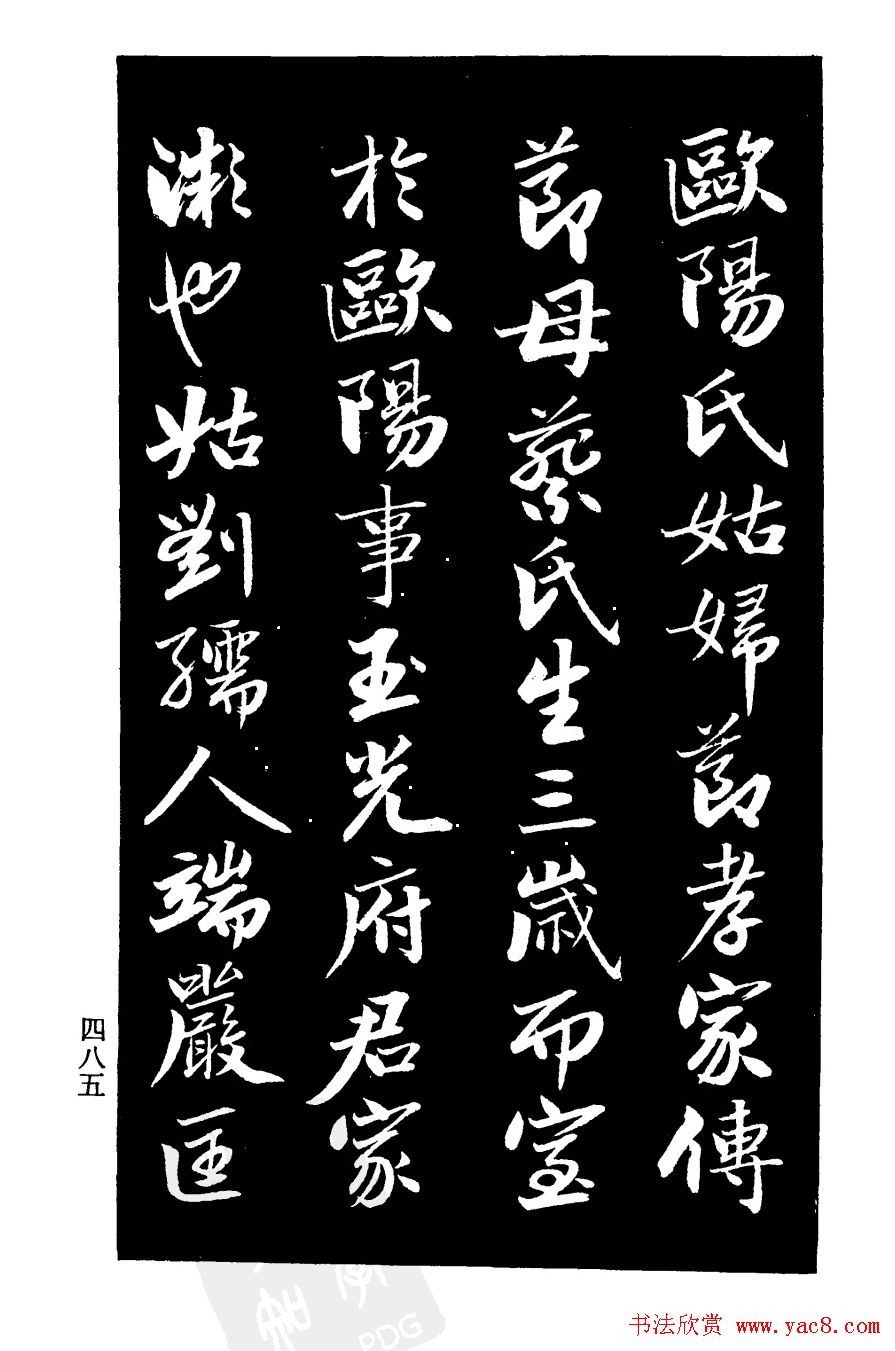 歐陽氏姑婦節孝家傳
節母蔡氏生三歲而室
於歐陽事玉光府君家
微也姑劉孺人端嚴匡
四八五
PDG
书法欣赏 www.yac8.com